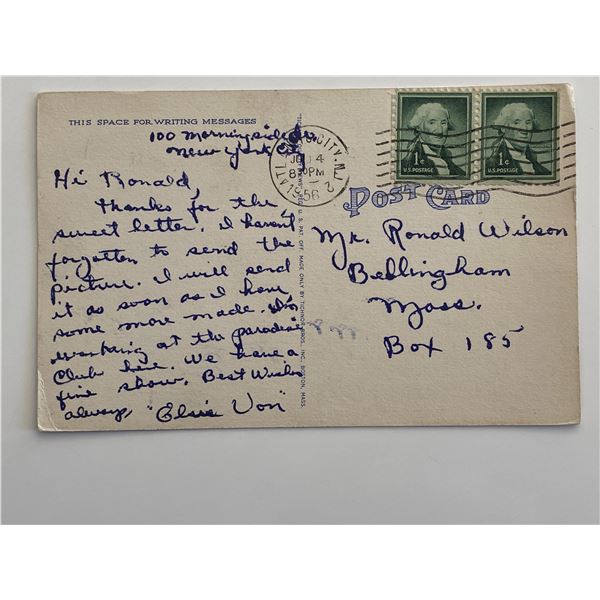 THIS SPACE FOR WRITING MESSAGES
100 Morningside Dr.
New York City
Hi Ronald,
Thanks for the
sweet letter. I haven't
forgotten to send the
picture. I will send
it as soon as I have
some more made. I'm
working at the paradise
Club here. We have a
fine show. Best Wishes
always, "Elsie Von"
ATLANTIC CITY, N.J.
4
8 30 PM
1956
2
1¢
U.S. POSTAGE
1¢
U.S. POSTAGE
POST CARD
Mr. Ronald Wilson
Bellingham
Mass.
Box 185
REG. U. S. PAT. OFF. MADE ONLY BY TICHNOR BROS., INC., BOSTON, MASS.